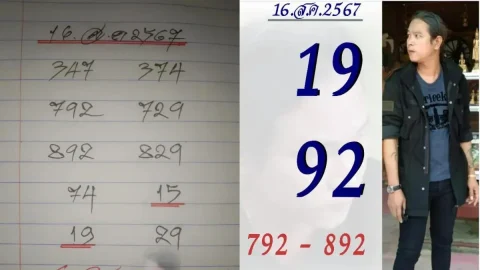 16 ส ค 2567
347 374
792 729
892 829
74 15
19 29
16.ส.ค.2567
19
92
792 - 892